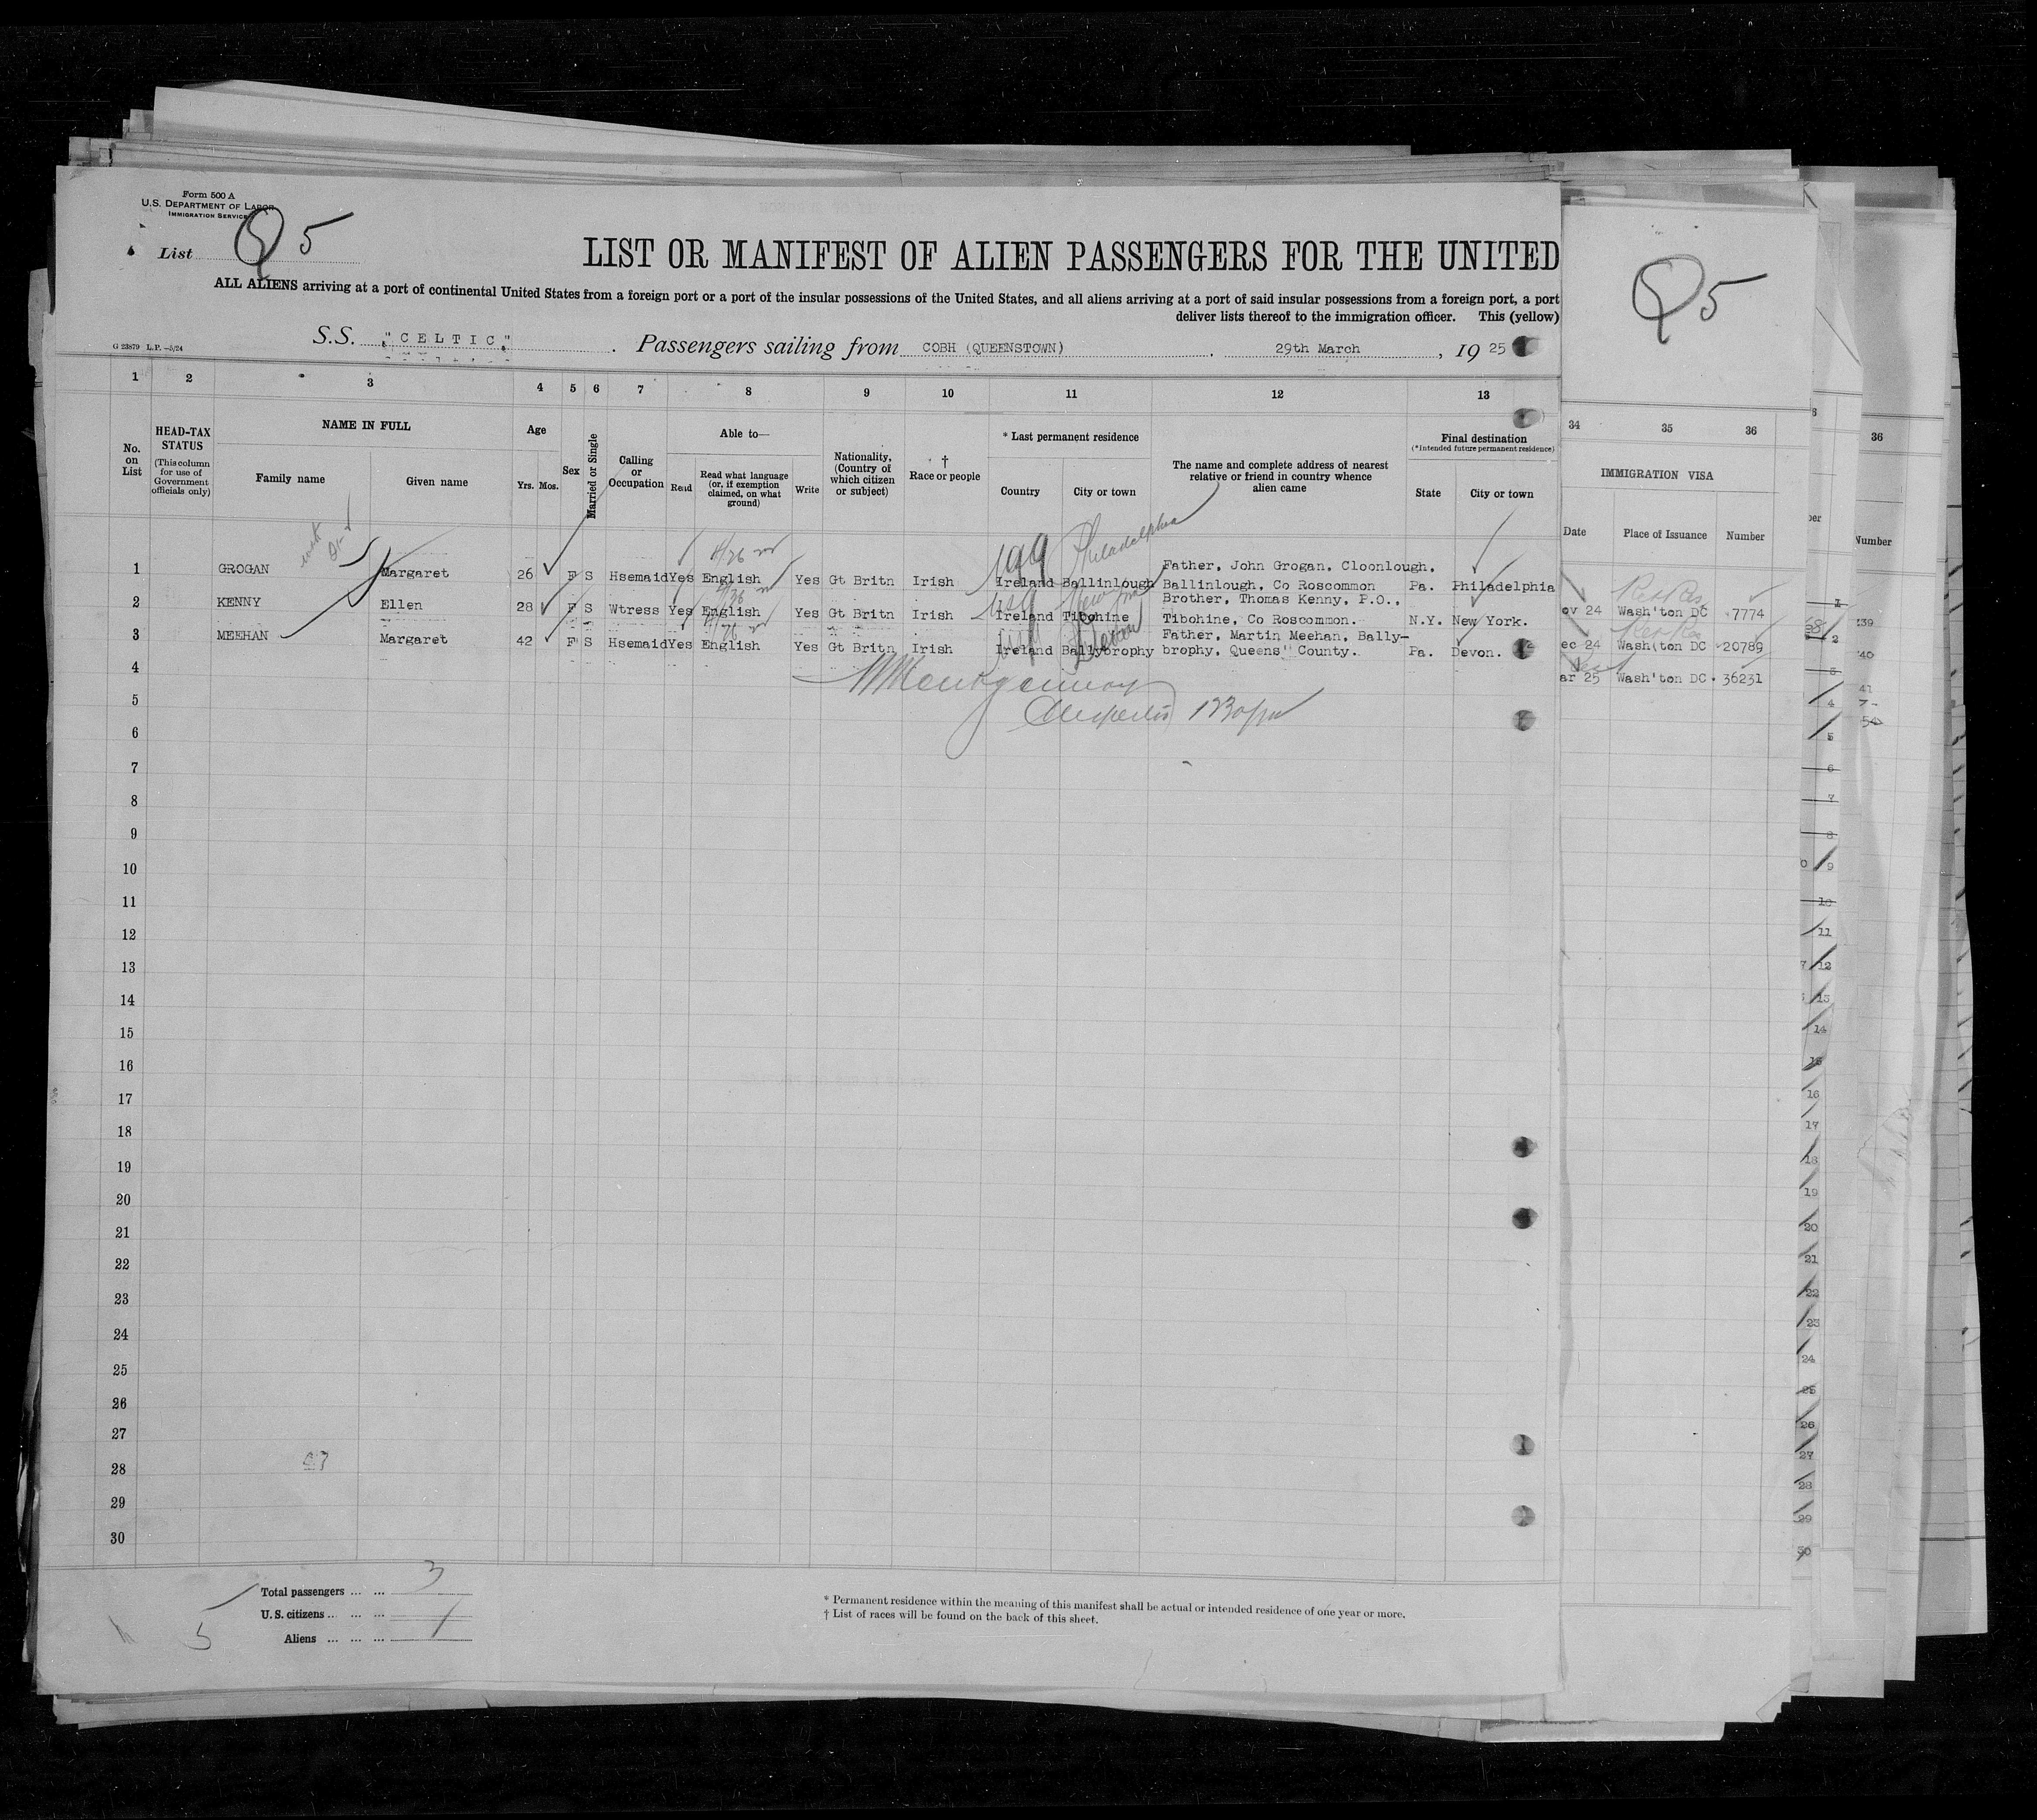 Form 500 A
U.S. DEPARTMENT OF LABOR
IMMIGRATION SERVICE
List Q5
LIST OR MANIFEST OF ALIEN PASSENGERS FOR THE UNITED
ALL ALIENS arriving at a port of continental United States from a foreign port or a port of the insular possessions of the United States, and all aliens arriving at a port of said insular possessions from a foreign port, a port
deliver lists thereof to the immigration officer. This (yellow)
G 23879 L.P. —5/24
S.S. "CELTIC" . Passengers sailing from COBH (QUEENSTOWN) . 29th March , 1925
Q5
1 2 3 4 5 6 7 8 9 10 11 12 13
34 35 36
36
No. on List
HEAD-TAX STATUS
(This column for use of Government officials only)
NAME IN FULL
Family name Given name
Age
Yrs. Mos.
Sex
Married or Single
Calling or Occupation
Able to—
Read
Read what language (or, if exemption claimed, on what ground)
Write
Nationality, (Country of which citizen or subject)
† Race or people
* Last permanent residence
Country City or town
The name and complete address of nearest relative or friend in country whence alien came
Final destination
(*Intended future permanent residence)
State City or town
IMMIGRATION VISA
Date Place of Issuance Number
Number
Philadelphia
1 GROGAN Margaret 26 F S Hsemaid Yes English Yes Gt Britn Irish Ireland Ballinlough Father, John Grogan, Cloonlough, Ballinlough, Co Roscommon Pa. Philadelphia
ov 24 Wash'ton DC 7774
2 KENNY Ellen 28 F S Wtress Yes English Yes Gt Britn Irish Ireland Tibohine Brother, Thomas Kenny, P.O., Tibohine, Co Roscommon. N.Y. New York.
ec 24 Wash'ton DC 20789
3 MEEHAN Margaret 42 F S Hsemaid Yes English Yes Gt Britn Irish Ireland Ballybrophy Father, Martin Meehan, Ballybrophy, Queens" County. Pa. Devon.
ar 25 Wash'ton DC 36231
4
5
6
7
8
9
10
11
12
13
14
15
16
17
18
19
20
21
22
23
24
25
26
27
28
29
30
Total passengers ... ... 3
U. S. citizens ... ... ...
Aliens ... ... ...
5
* Permanent residence within the meaning of this manifest shall be actual or intended residence of one year or more.
† List of races will be found on the back of this sheet.